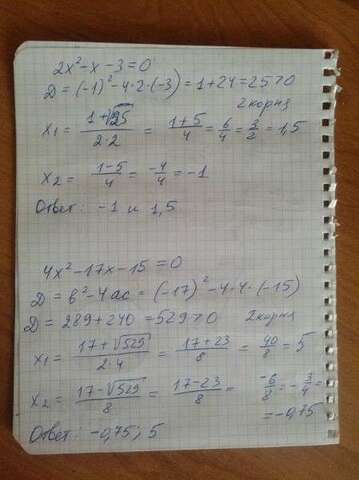 2x²-x-3=0
D=(-1)²-4·2·(-3)=1+24=25>0
2 корня
x₁ = (1+√25)/(2·2) = (1+5)/4 = 6/4 = 3/2 = 1,5
x₂ = (1-5)/4 = -4/4 = -1
Ответ: -1 и 1,5
4x²-17x-15=0
D = b²-4ac = (-17)²-4·4·(-15)
D = 289+240=529>0 2 корня
x₁ = (17+√529)/(2·4) = (17+23)/8 = 40/8 = 5
x₂ = (17-√529)/8 = (17-23)/8 = -6/8 = -3/4 =
= -0,75
Ответ: -0,75; 5